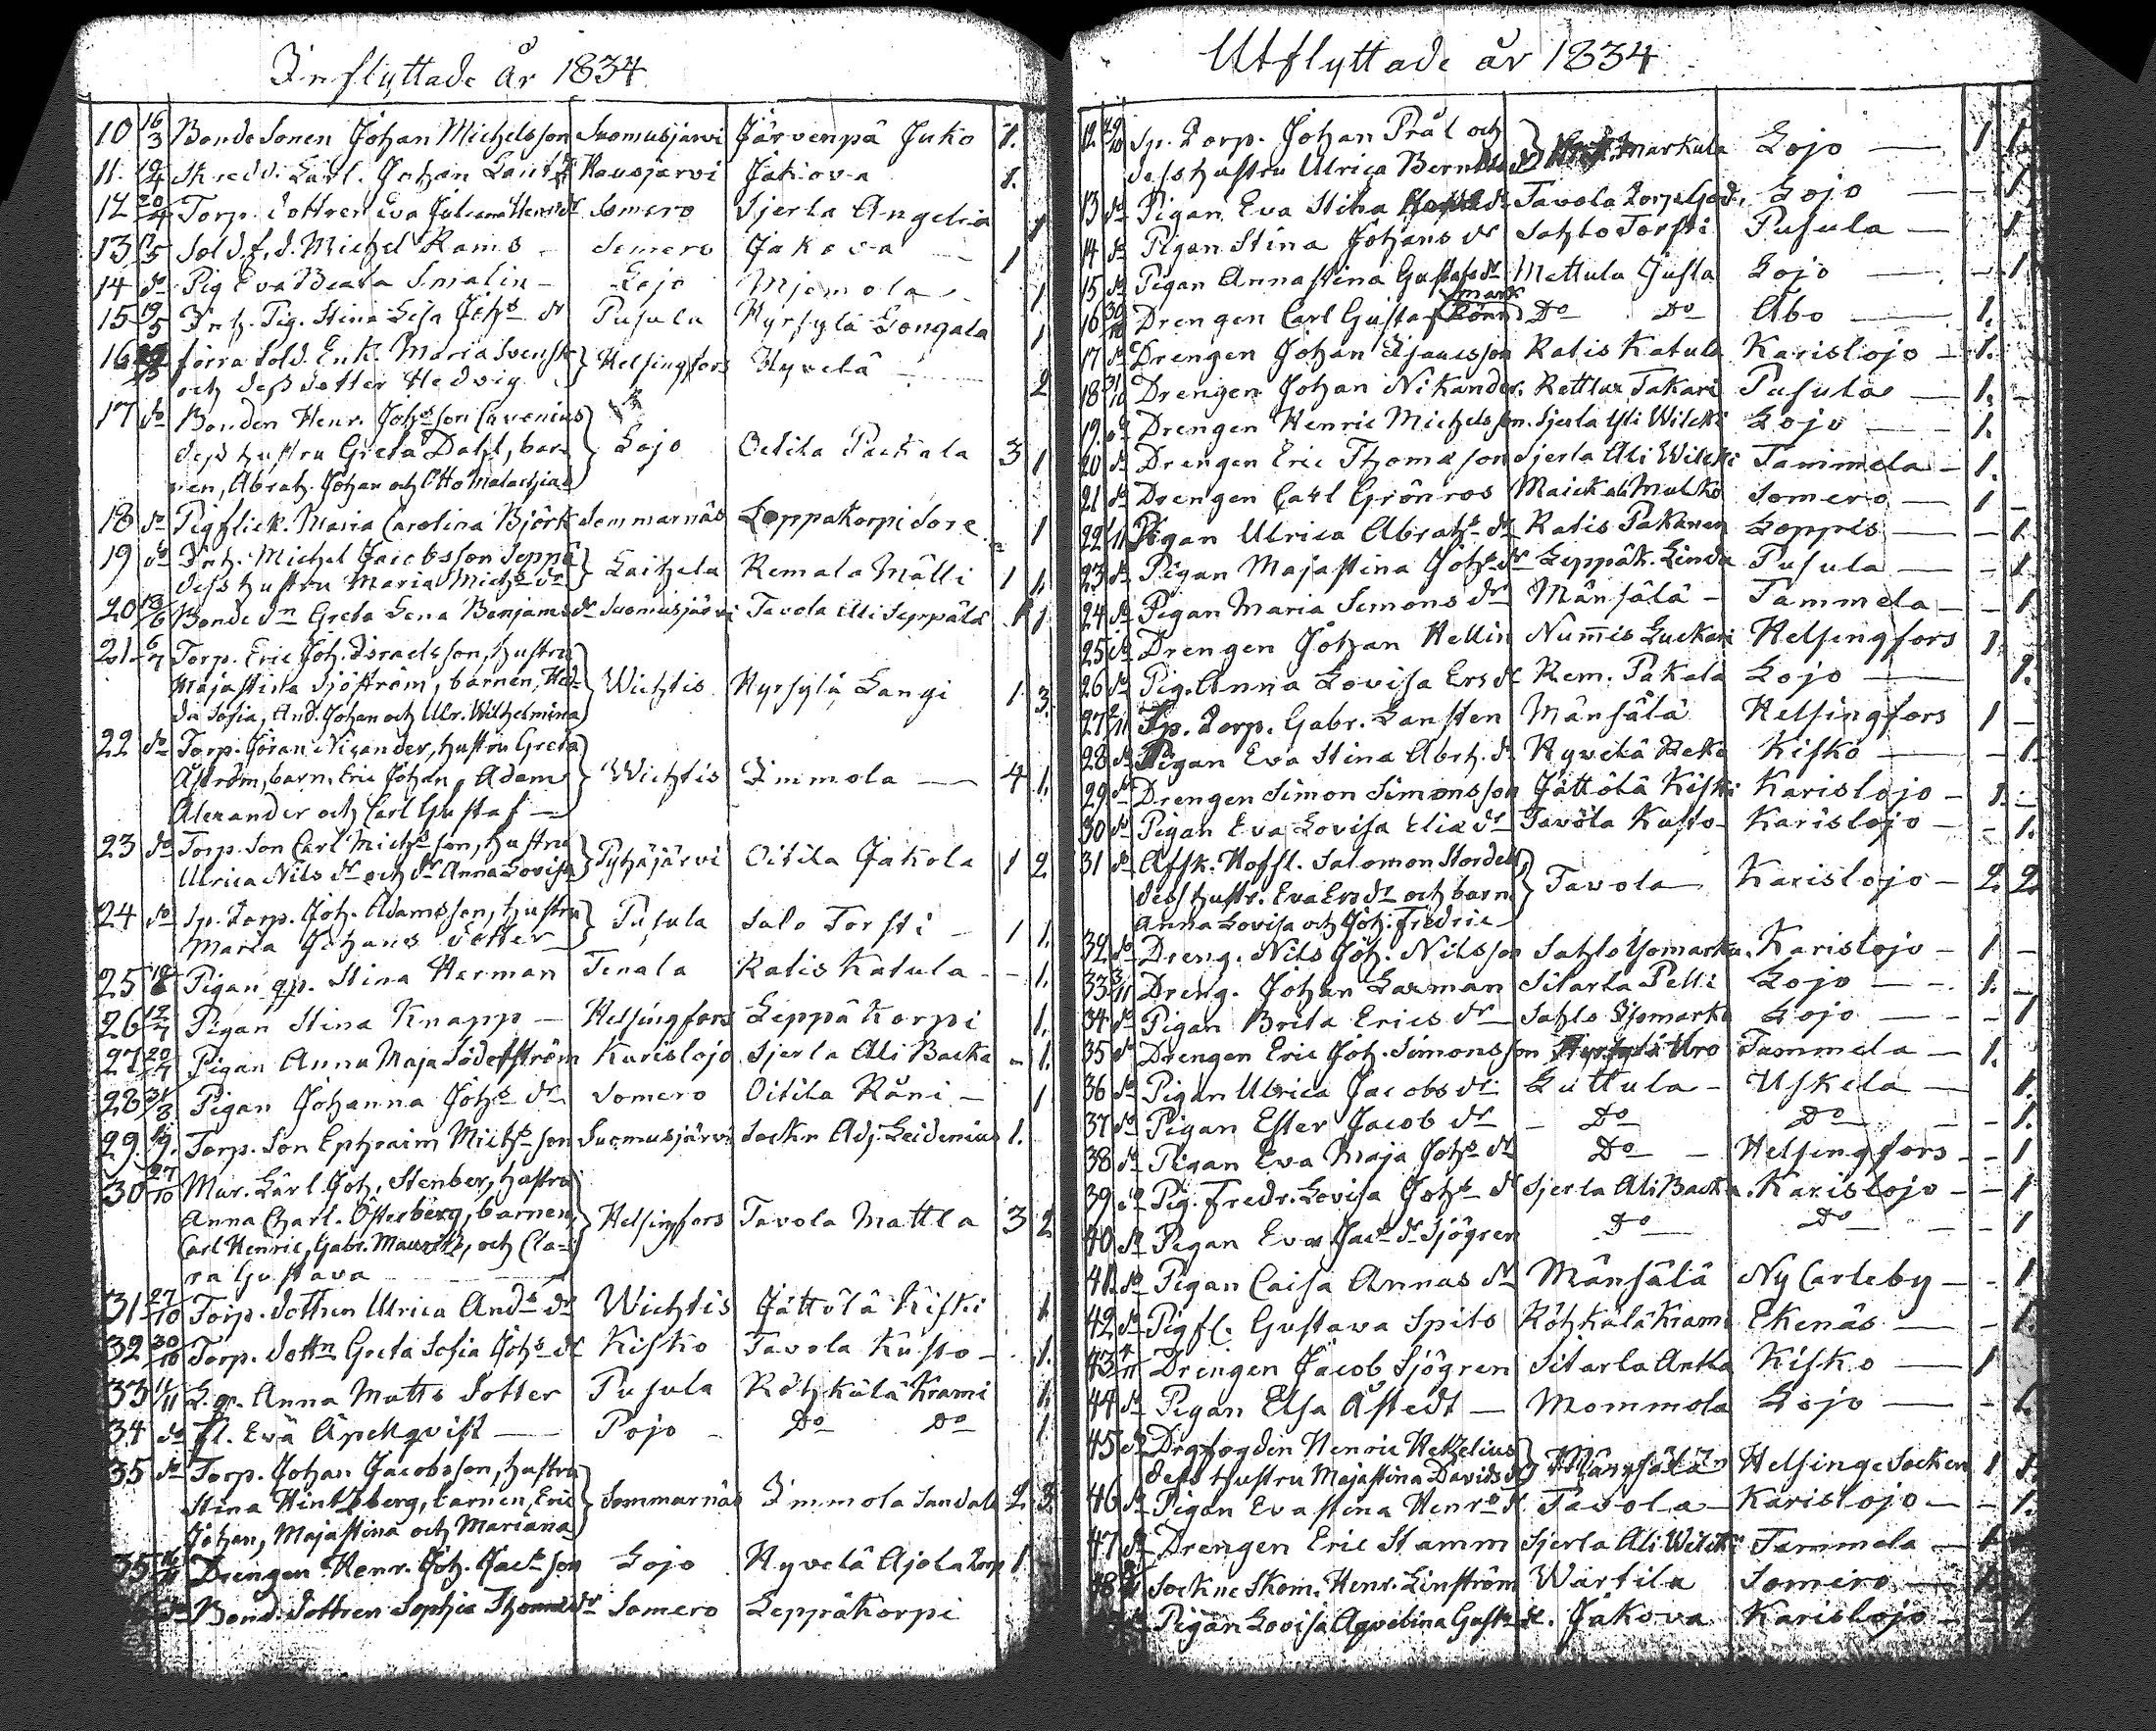 Inflyttade år 1834
10 16/3 Bonde Sonen Johan Michelsson Suomusjärvi Järvenpä Juko 1.
11. Skredd. Lärl. Johan Hausjärvi Jakova 1.
12 Torp. dottren Eva Juliana Henrs dr Somero Sjerla Angelia 1
13 Sold. f. d. Michel Rams Somero Jakova 1
14 do Pig Eva Beata Smalin Lojo Mjemola 1
15 19/5 Inh. Pig. Stina Lisa Johs dr Pusula Hyrsylä Gongala 1
16 förra Sold. Enk. Maria Svensk
och dess dotter Hedvig Helsingfors Hyvelä 2
17 do Bonden Henr. Johsson Cavenius
dess hustru Greta Dahl, bar- Lojo Oitila Packala 3 1
nen, Abrah. Johan och Otto Malachias
18 do Pigflick. Maria Carolina Björk Sommarnäs Leppäkorpi Sore 1
19 do Inh. Michel Jacobsson Seppä
dess hustru Maria Michs dr Laihela Remala Mälli 1 1.
20 13/6 Bonde dn Greta Lena Benjams dr Suomusjärvi Tavola Ali Seppälä 1
21 6/7 Torp. Eric Joh. Israelsson, hustru
Majastina Sjöström, barnen, Hed- Wichtis Hyrsylä Langi 1 3.
da Sofia, And. Johan och Ulr. Wilhelmina
22 do Torp. Göran Nizander, hustru Greta
Åström, barn. Eric Johan, Adam Wichtis Immola 4 1.
Alexander och Carl Gustaf
23 do Torp. Son Carl Michs son, hustru
Ulrica Nils dr och dr Anna Lovisa Pyhäjärvi Oitila Jakola 1 2
24 do Sp. Torp. Joh. Adamsson, hustru
Maria Johans dotter Pusula Salo Torsti 1 1.
25 Pigan gp. Stina Herman Tenala Ratis Katula - 1.
26 12/7 Pigan Stina Knapp Helsingfors Leppäkorpi 1.
27 20/7 Pigan Anna Maja Söderström Karislojo Sjerla Ali Backa - 1.
28 31/8 Pigan Johanna Johs dr Somero Oitila Räni 1
29. Torp. Son Ephraim Michs son Suomusjärvi Sockn Adj. Leidenius 1.
30 27/10 Mur. Lärl. Joh. Stenber, hustru
Anna Charl. Österberg, barnen, Helsingfors Tavola Mattla 3 2
Carl Henric, Gabr. Mauritz, och Cla-
ra Gustava
31 27/10 Torp. dottren Ulrica Ands dr Wichtis Jättölä Kiski 1
32 30/10 Torp. dottn Greta Sofia Johs dr Kisko Tavola Kusto 1.
33 L. gr. Anna Matts dotter Pusula Röhkälä Krami 1.
34 do fl. Eva Äpelqvist Pojo Do Do 1
35 do Torp. Johan Jacobsson, hustru
Stina Hintzberg, barnen, Eric Sommarnäs Immola Sandals 2 3.
Johan, Majastina och Mariana
35 Drengen Henr. Joh. Jacs son Lojo Hyvelä Ajola Torp 1
do Bond. dottren Sophia Thomæ dr Somero Leppäkorpi
Utflyttade år 1834
12 Sp. Torp. Johan Prål och
dess hustru Ulrica Bernts dr Markula Lojo 1 1.
13 do Pigan Eva Stina Tavola Torp. God. Lojo 1
14 do Pigan Stina Johans dr Sahlo Torsti Pusula 1
15 do Pigan Annastina Gustafs dr Mettula Justa Lojo 1
Smark
16 30/10 Drengen Carl Gustaf Rönn Do Do Åbo 1.
17 do Drengen Johan Isaacsson Ratis Katula Karislojo 1.
18 31/10 Drengen Johan Nikander. Rettlax Takari Pusula 1.
19. do Drengen Henric Michelsson. Sjerla Yli Wilcki Lojo 1.
20 do Drengen Eric Thomæson Sjerla Ali Wilcki Tammela 1.
21 do Drengen Carl Grönros Maickala Mulko Somero 1
22 1/11 Pigan Ulrica Abrahs dr Ratis Pakanen Loppis 1
23 do Pigan Majastina Johs dr Leppäk. Linda Pusula 1
24 do Pigan Maria Semons dr Mänsälä Tammela 1
25 do Drengen Johan Hellin Nummis Luckari Helsingfors 1.
26 do Pig. Anna Lovisa Ers dr Rem. Pakala Lojo 1.
27 2/11 Sp. Torp. Gabr. Lansten Mänsälä Helsingfors 1
28 do Pigan Eva Stina Abrh. dr Hyvelä Heko Kisko 1.
29 do Drengen Simon Simonsson Jättölä Kiski Karislojo 1.
30 do Pigan Eva Lovisa Eliæ dr Tavola Kusto Karislojo 1.
31 do Afsk. Hofsl. Salomon Nordell,
dess hustr. Eva Ers dr och barn Tavola Karislojo 2. 2.
Anna Lovisa och Joh. Fredric
32 do Dreng. Nils Joh. Nilsson Sahlo Yomarku. Karislojo 1
33 3/11 Dreng. Johan Larman Sitarla Pelli Lojo 1.
34 do Pigan Brita Erics dr Sahlo Yomarku Lojo 1
35 do Drengen Eric Joh. Simonsson Hyrsylä Uro Tammela 1.
36 do Pigan Ulrica Jacobs dr Luttula Uskela 1.
37 do Pigan Ester Jacob dr Do Do 1.
38 do Pigan Eva Maja Johs dr Do Helsingfors 1
39 do Pig. Fredr. Lovisa Johs dr Sjerla Ali Backa. Karislojo 1
40 do Pigan Eva Jacs dr Sjögren Do Do 1
41. do Pigan Caisa Annas dr Mänsälä Ny Carleby 1
42 do Pigfl. Gustava Spits Röhkälä Krami Ekenäs 1.
43 Drengen Jacob Sjögren Sitarla Antla Kisko 1
44 do Pigan Elsa Åstedt Mommola Lojo 1.
45 do Drgfogden Henric Hetzelius
dess hustru Majastina Davids dr Mänsälä Helsinge Socken 1 1.
46 do Pigan Evastina Henrs dr Tavola Karislojo 1.
47 do Drengen Eric Stamm Sjerla Ali Wilcki Tammela 1
48 Sockne Skom. Henr. Linström Wartila Somero 1
Pigan Lovisa Agvelina Gusts dr. Jakova Karislojo 1